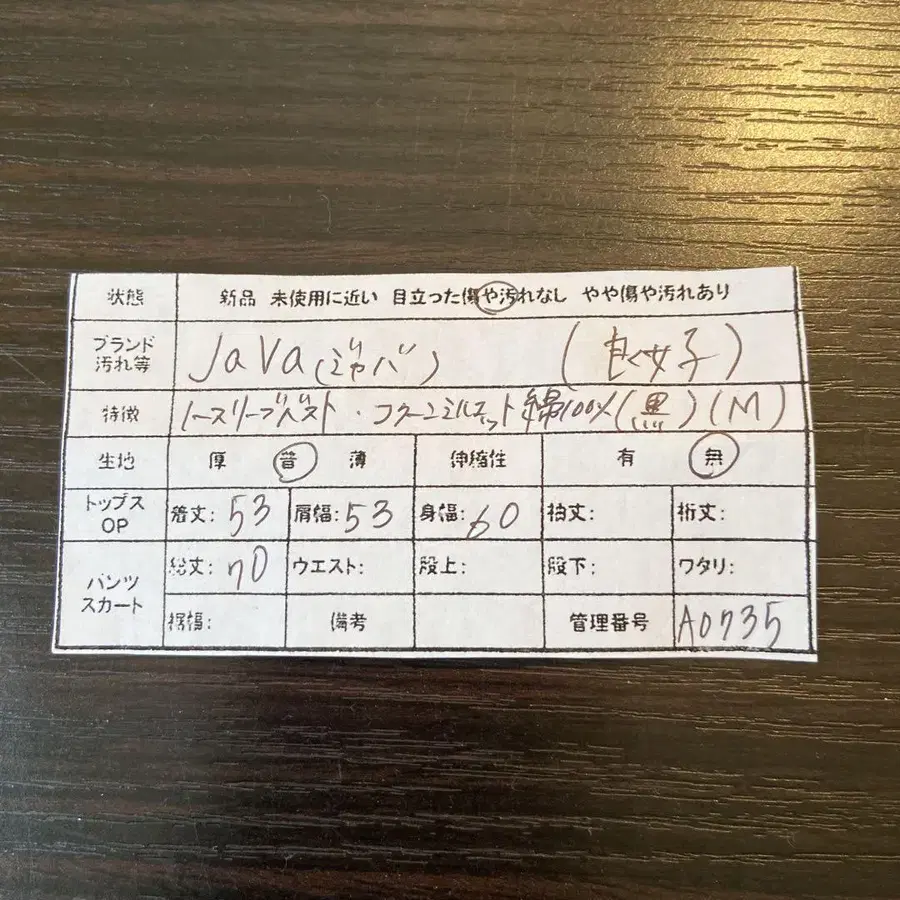 状態 新品 未使用に近い 目立った傷や汚れなし やや傷や汚れあり
ブランド 汚れ等 JaVa(ジャバ) (良女子)
特徴 ノースリーブベスト・コクーンシルエット 綿100%(黒)(M)
生地 厚 普 薄 伸縮性 有 無
トップス OP 着丈: 53 肩幅: 53 身幅: 60 袖丈: 裄丈:
パンツ スカート 総丈: 70 ウエスト: 股上: 股下: ワタリ:
裾幅: 備考 管理番号 A0735